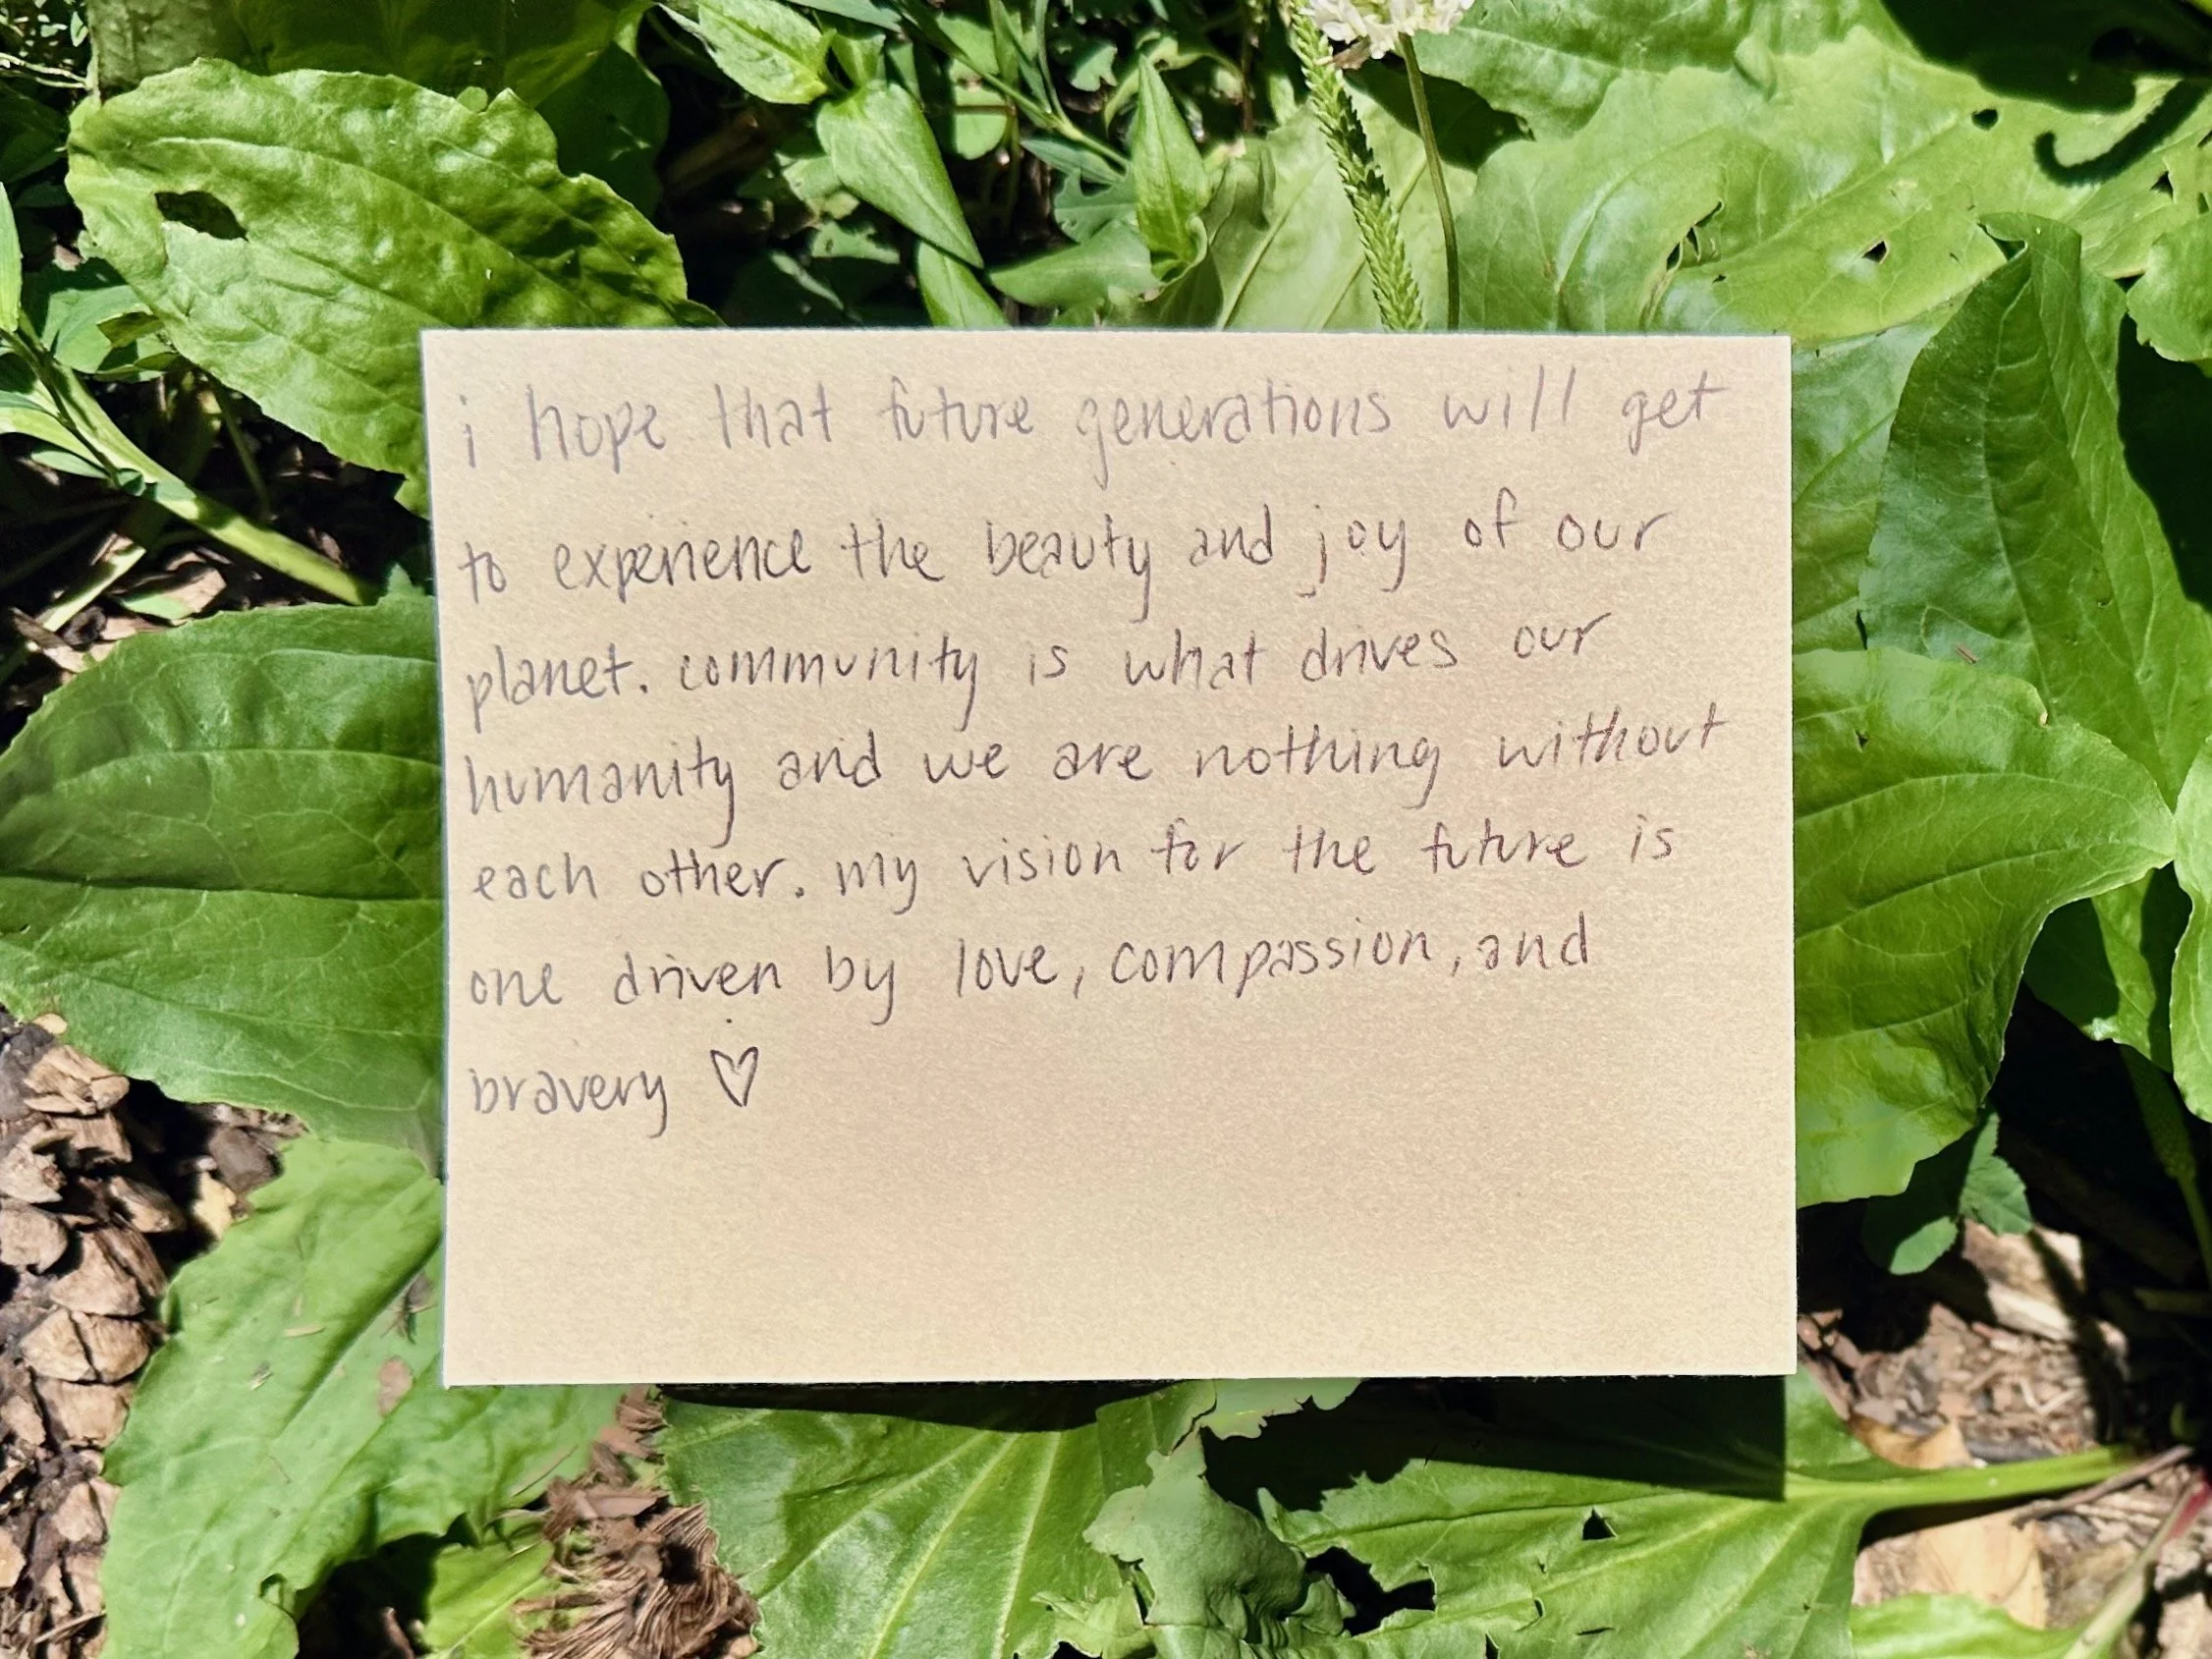 i hope that future generations will get
to experience the beauty and joy of our
planet. community is what drives our
humanity and we are nothing without
each other. my vision for the future is
one driven by love, compassion, and
bravery ♡